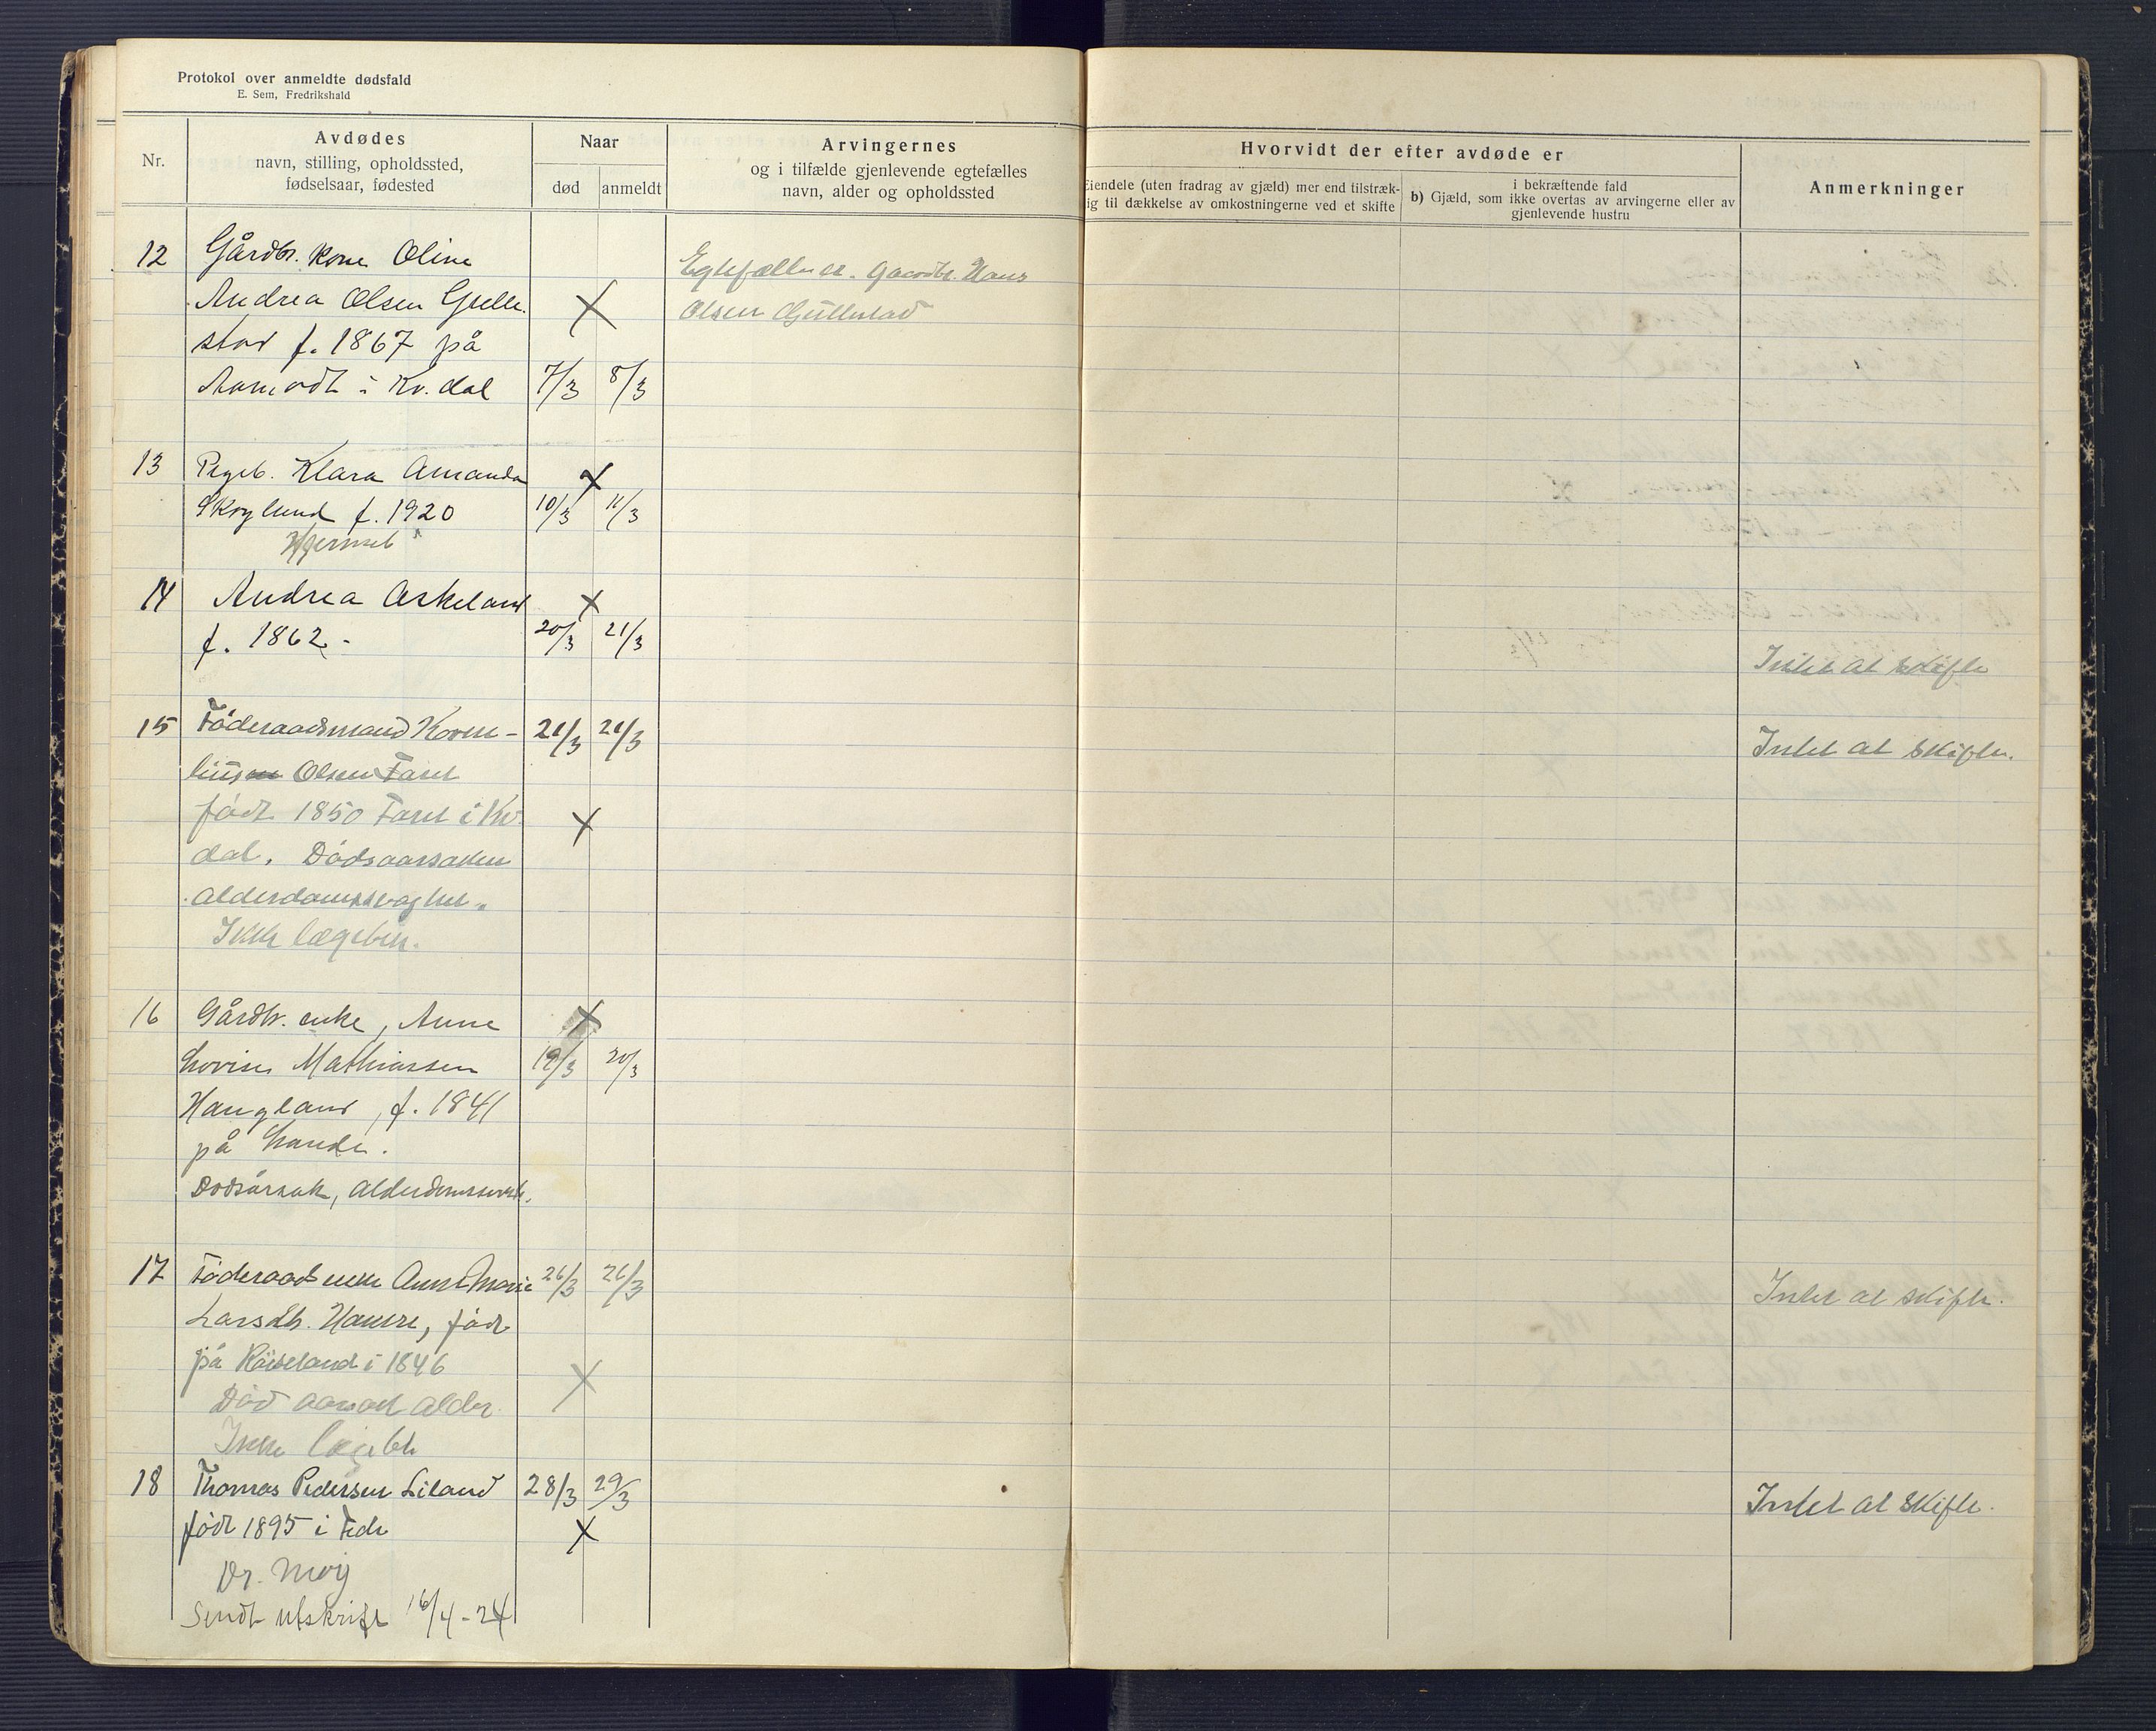 Protokol over anmeldte dødsfald
E. Sem, Fredrikshald
Nr.
Avdødes
navn, stilling, opholdssted,
fødselsaar, fødested
Naar
død
anmeldt
Arvingernes
og i tilfælde gjenlevende egtefælles
navn, alder og opholdssted
Hvorvidt der efter avdøde er
Eiendele (uten fradrag av gjæld) mer end tilstræk-
ig til dækkelse av omkostningerne ved et skifte
b) Gjæld, som
i bekræftende fald
ikke overtas av arvingerne eller av
gjenlevende hustru
Anmerkninger
12 Gårdbr. kone Oline
Andrea Olsen Gulle-
stad f. 1867 på
Aamodt i Kv.dal 7/3 8/3
Egtefælle er. Gaardbr. Hans
Olsen Gullestad
13 Pigeb. Klara Amanda
Skoglund f. 1920 10/3 11/3
14 Andrea Askeland
f. 1862 - 20/3 21/3
Intet at skifte
15 Föderaadsmand Korne- 21/3 21/3
lius Olsen Faret
född 1850 Faret i Kv.
dal. Dödsaarsaken
alderdomssvaghet.
Ikke lægebeh.
Intet at skifte.
16 Gårdbr. enke, Anne
Lovise Mathiassen 19/3 20/3
Haugland, f. 1841
på Lande.
Dødsårsak, alderdomssvakh.
17 Föderaadsenke Anne Marie 26/3 26/3
Larsdt. Hamre, född
på Röiseland i 1846
Död aarsak alder
Ikke lægebh
Intet at skifte.
18 Thomas Pedersen Liland 28/3 29/3
född 1895 i Fede
Dr. Moij
Sendt utskrift 16/4-24
Intet at skifte.